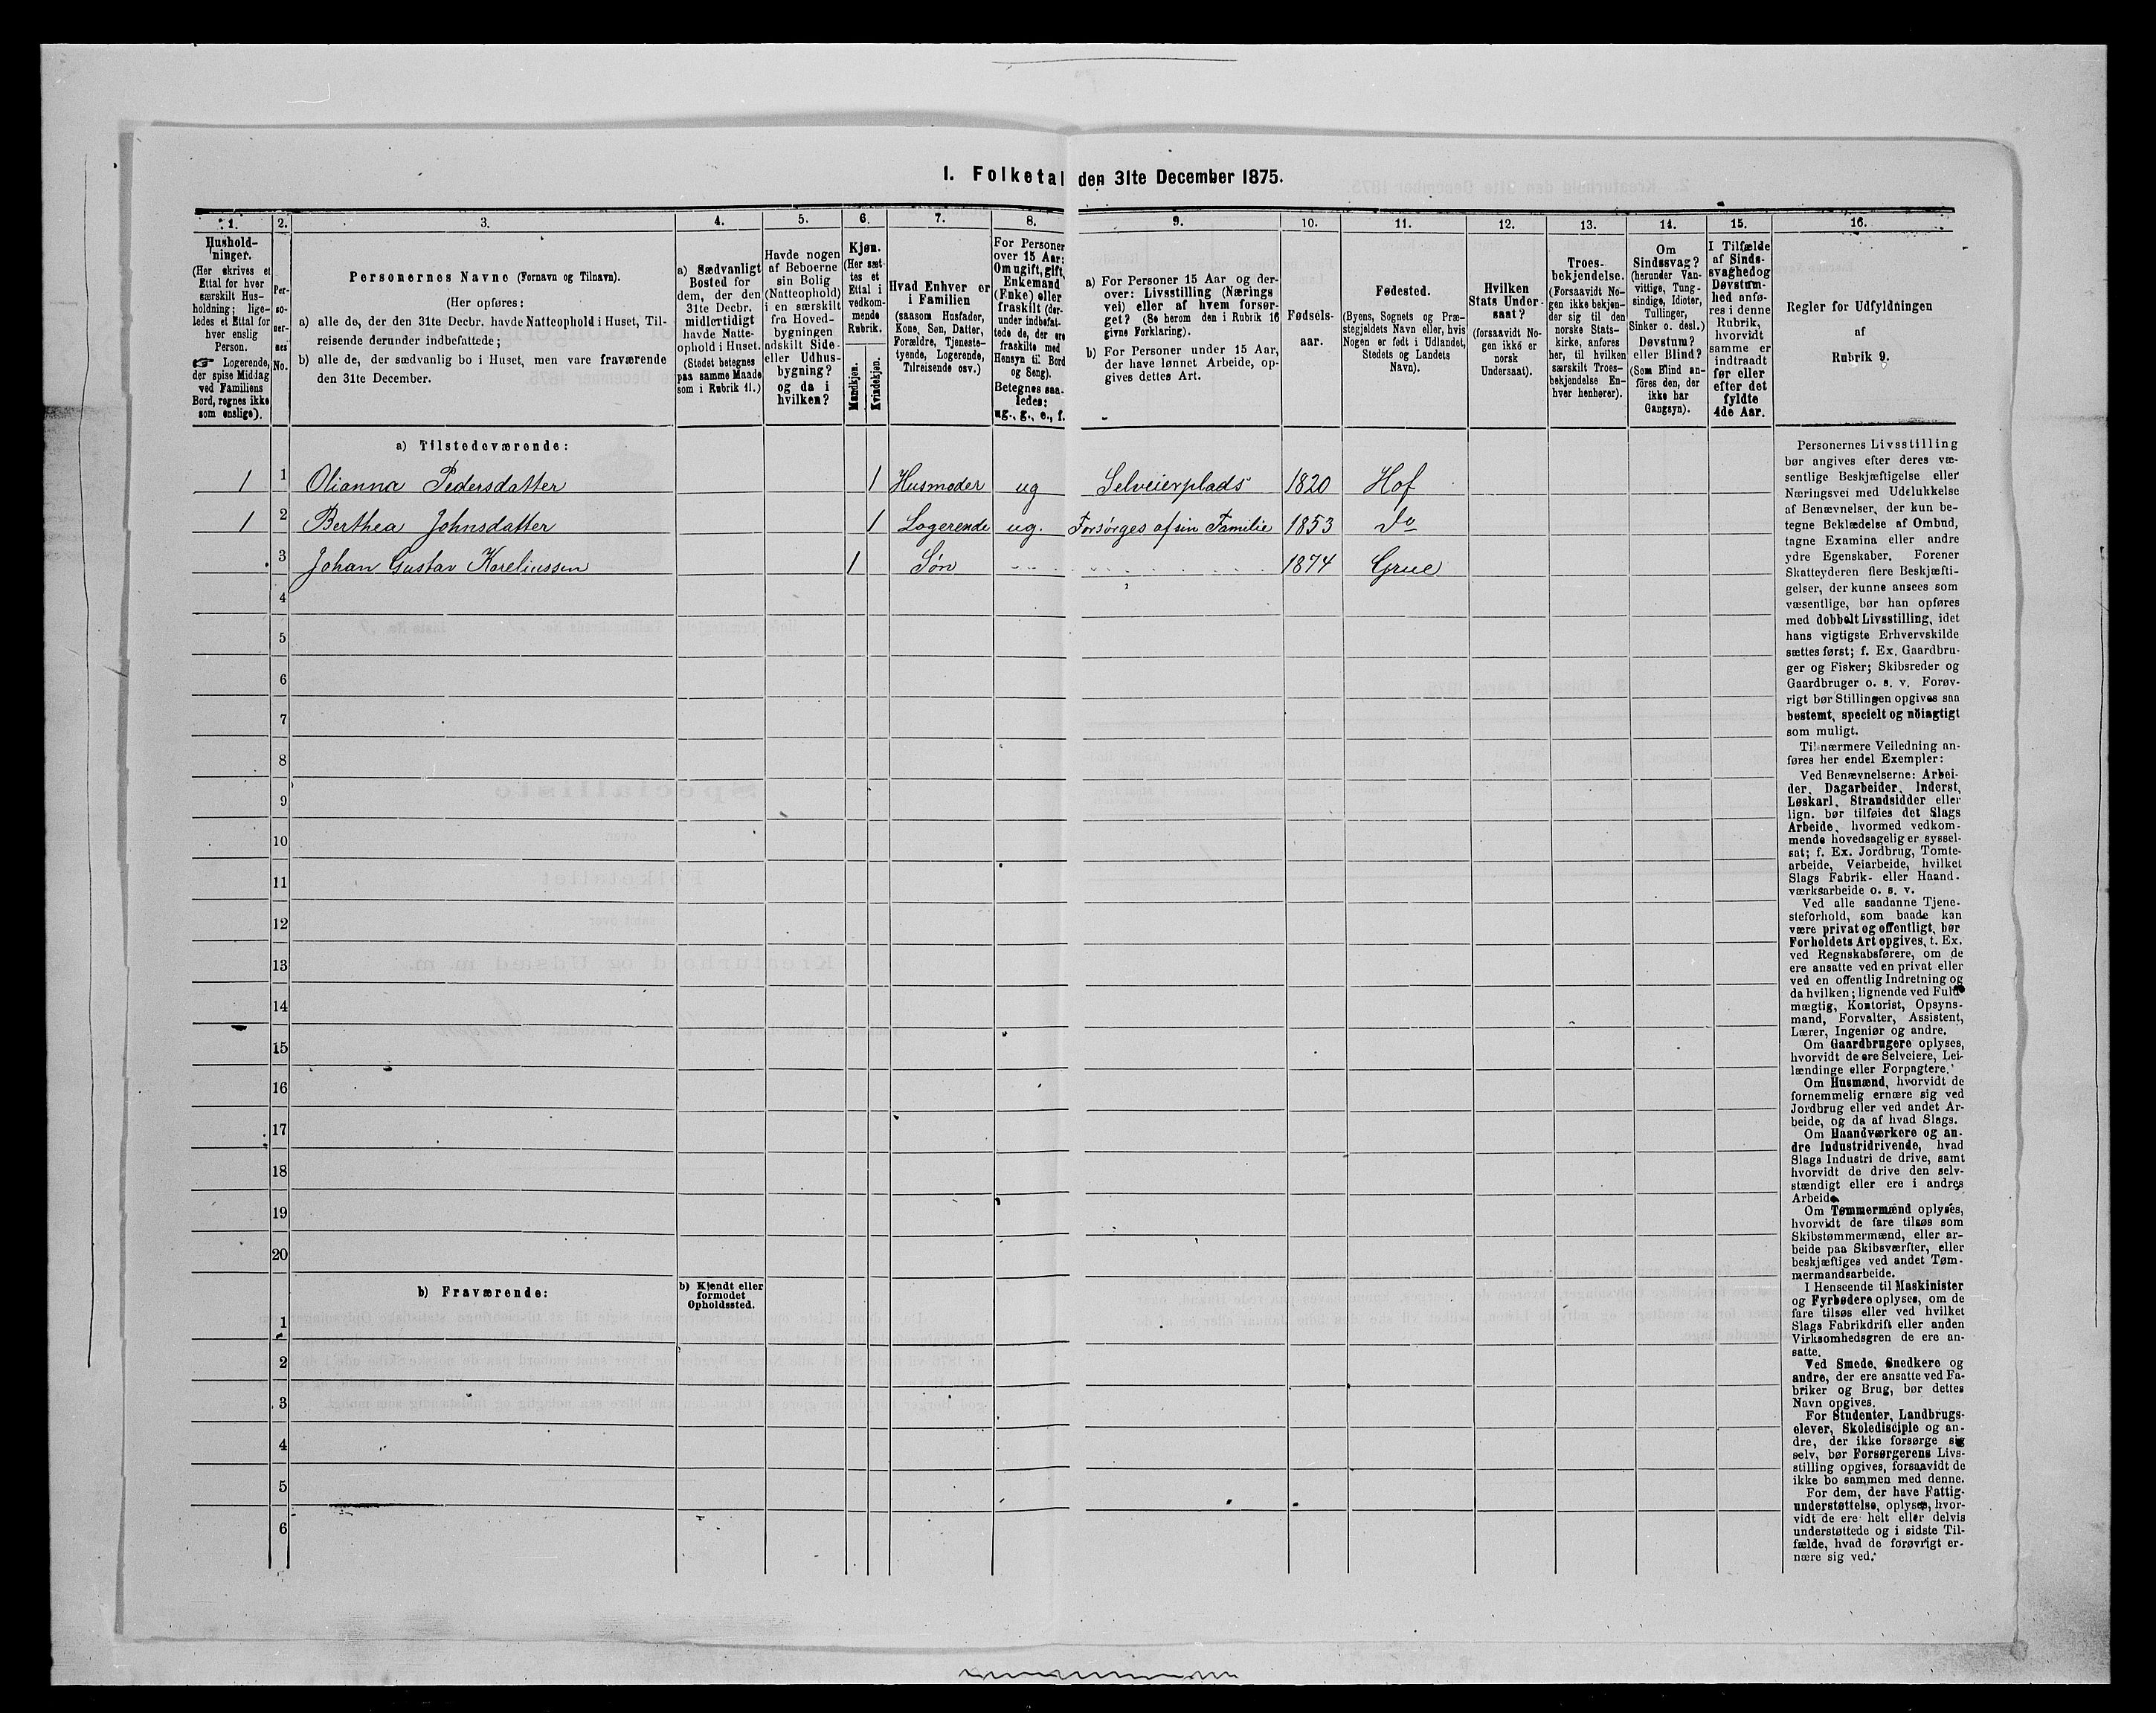 1. Folketal den 31te December 1875.
1.
2.
3.
4.
5.
6.
7.
8.
9.
10.
11.
12.
13.
14.
15.
16.
Hushold-
ninger.
(Her skrives et
Ettal for hver
særskilt Hus-
holdning; lige-
ledes et Ettal for
hver enslig
Person.
☞ Logerende,
der spise Middag
ved Familiens
Bord, regnes ikke
som enslige).
Per-
so-
ner-
nes
No.
Personernes Navne (Fornavn og Tilnavn).
(Her opføres:
a) alle de, der den 31te Decbr. havde Natteophold i Huset, Til-
reisende derunder indbefattede;
b) alle de, der sædvanlig bo i Huset, men vare fraværende
den 31te December.
a) Sædvanligt
Bosted for
dem, der den
31te Decbr.
midlertidigt
havde Natte-
ophold i Huset.
(Stedet betegnes
paa samme Maade
som i Rubrik 11.)
Havde nogen
af Beboerne
sin Bolig
(Natteophold)
i en særskilt
fra Hoved-
bygningen
adskilt Side-
eller Udhus-
bygning?
og da i
hvilken?
Kjøn.
(Her sæt-
tes et
Ettal i
vedkom-
mende
Rubrik.
Mandkjøn.
Kvindekjøn.
Hvad Enhver er
i Familien
(saasom Husfader,
Kone, Søn, Datter,
Forældre, Tjeneste-
tyende, Logerende,
Tilreisende osv.)
For Personer
over 15 Aar:
Om ugift, gift,
Enkemand
(Enke) eller
fraskilt (der-
under indbefat-
tede de, der ere
fraskilte med
Hensyn til Bord
og Seng).
Betegnes saa-
ledes:
ug., g., e., f.
a) For Personer 15 Aar og der-
over: Livsstilling (Nærings
vei) eller af hvem forsør-
get? (Se herom den i Rubrik 16
givne Forklaring).
b) For Personer under 15 Aar,
der have lønnet Arbeide, op-
gives dettes Art.
Fødsels-
aar.
Fødested.
(Byens, Sognets og Præ-
stegjeldets Navn eller, hvis
Nogen er født i Udlandet,
Stedets og Landets
Navn).
Hvilken
Stats Under-
saat?
(forsaavidt No-
gen ikke er
norsk
Undersaat).
Troes-
bekjendelse.
(Forsaavidt No-
gen ikke bekjen-
der sig til den
norske Stats-
kirke, anføres
her, til hvilken
særskilt Troes-
bekjendelse En-
hver henhører).
Om
Sindssvag?
(herunder Van-
vittige, Tung-
sindige, Idioter,
Tullinger,
Sinker o. desl.)
Døvstum?
eller Blind?
(Som Blind an-
føres den, der
ikke har
Gangsyn).
I Tilfælde
af Sinds-
svaghed og
Døvstum-
hed anfø-
res i denne
Rubrik,
hvorvidt
samme er
indtraadt
før eller
efter det
fyldte
4de Aar.
Regler for Udfyldningen
af
Rubrik 9.
a) Tilstedeværende:
1 1 Olianna Pedersdatter 1 Husmoder ug Selveierplads 1820 Hof
1 2 Berthea Johnsdatter 1 Logerende ug. Forsørges af sin Familie 1853 Do
3 Johan Gustav Koreliussen 1 Søn 1874 Grue
4
5
6
7
8
9
10
11
12
13
14
15
16
17
18
19
20
b) Fraværende:
b) Kjendt eller
formodet
Opholdssted.
1
2
3
4
5
6
Personernes Livsstilling
bør angives efter deres væ-
sentlige Beskjæftigelse eller
Næringsvei med Udelukkelse
af Benævnelser, der kun be-
tegne Beklædelse af Ombud,
tagne Examina eller andre
ydre Egenskaber. Forener
Skatteyderen flere Beskjæfti-
gelser, der kunne ansees som
væsentlige, bør han opføres
med dobbelt Livsstilling, idet
hans vigtigste Erhvervskilde
sættes først; f. Ex. Gaardbru-
ger og Fisker; Skibsreder og
Gaardbruger o. s. v. Forøv-
rigt bør Stillingen opgives saa
bestemt, specielt og nöiagtigt
som muligt.
Til nærmere Veiledning an-
føres her endel Exempler:
Ved Benævnelserne: Arbei-
der, Dagarbeider, Inderst,
Løskarl, Strandsidder eller
lign. bør tilføies det Slags
Arbeide, hvormed vedkom-
mende hovedsagelig er syssel-
sat; f. Ex. Jordbrug, Tomte-
arbeide, Veiarbeide, hvilket
Slags Fabrik- eller Haand-
værksarbeide o. s. v.
Ved alle saadanne Tjene-
steforhold, som baade kan
være privat og offentligt, bør
Forholdets Art opgives, t. Ex.
ved Regnskabsførere, om de
ere ansatte ved en privat eller
ved en offentlig Indretning og
da hvilken; lignende ved Fuld-
mægtig, Kontorist, Opsyns-
mand, Forvalter, Assistent,
Lærer, Ingeniør og andre.
Om Gaardbrugere oplyses,
hvorvidt de ere Selveiere, Lei-
lændinge eller Forpagtere.
Om Husmænd, hvorvidt de
fornemmelig ernære sig ved
Jordbrug eller ved andet Ar-
beide, og da af hvad Slags.
Om Haandværkere og an-
dre Industridrivende, hvad
Slags Industri de drive, samt
hvorvidt de drive den selv-
stændigt eller ere i andres
Arbeide.
Om Tømmermænd oplyses,
hvorvidt de fare tilsøs som
Skibstømmermænd, eller ar-
beide paa Skibsværfter, eller
beskjæftiges ved andet Tøm-
mermandsarbeide.
I Henseende til Maskinister
og Fyrbødere oplyses, om de
fare tilsøs eller ved hvilket
Slags Fabrikdrift eller anden
Virksomhedsgren de ere an-
satte.
Ved Smede, Snedkere og
andre, der ere ansatte ved Fa-
briker og Brug, bør dettes
Navn opgives.
For Studenter, Landbrugs-
elever, Skoledisciple og an-
dre, der ikke forsørge sig
selv, bør Forsørgerens Livs-
stilling opgives, forsaavidt de
ikke bo sammen med denne.
For dem, der have Fattig-
understøttelse, oplyses, hvor-
vidt de ere helt eller delvis
understøttede og i sidste Til-
fælde, hvad de forøvrigt er-
nære sig ved.